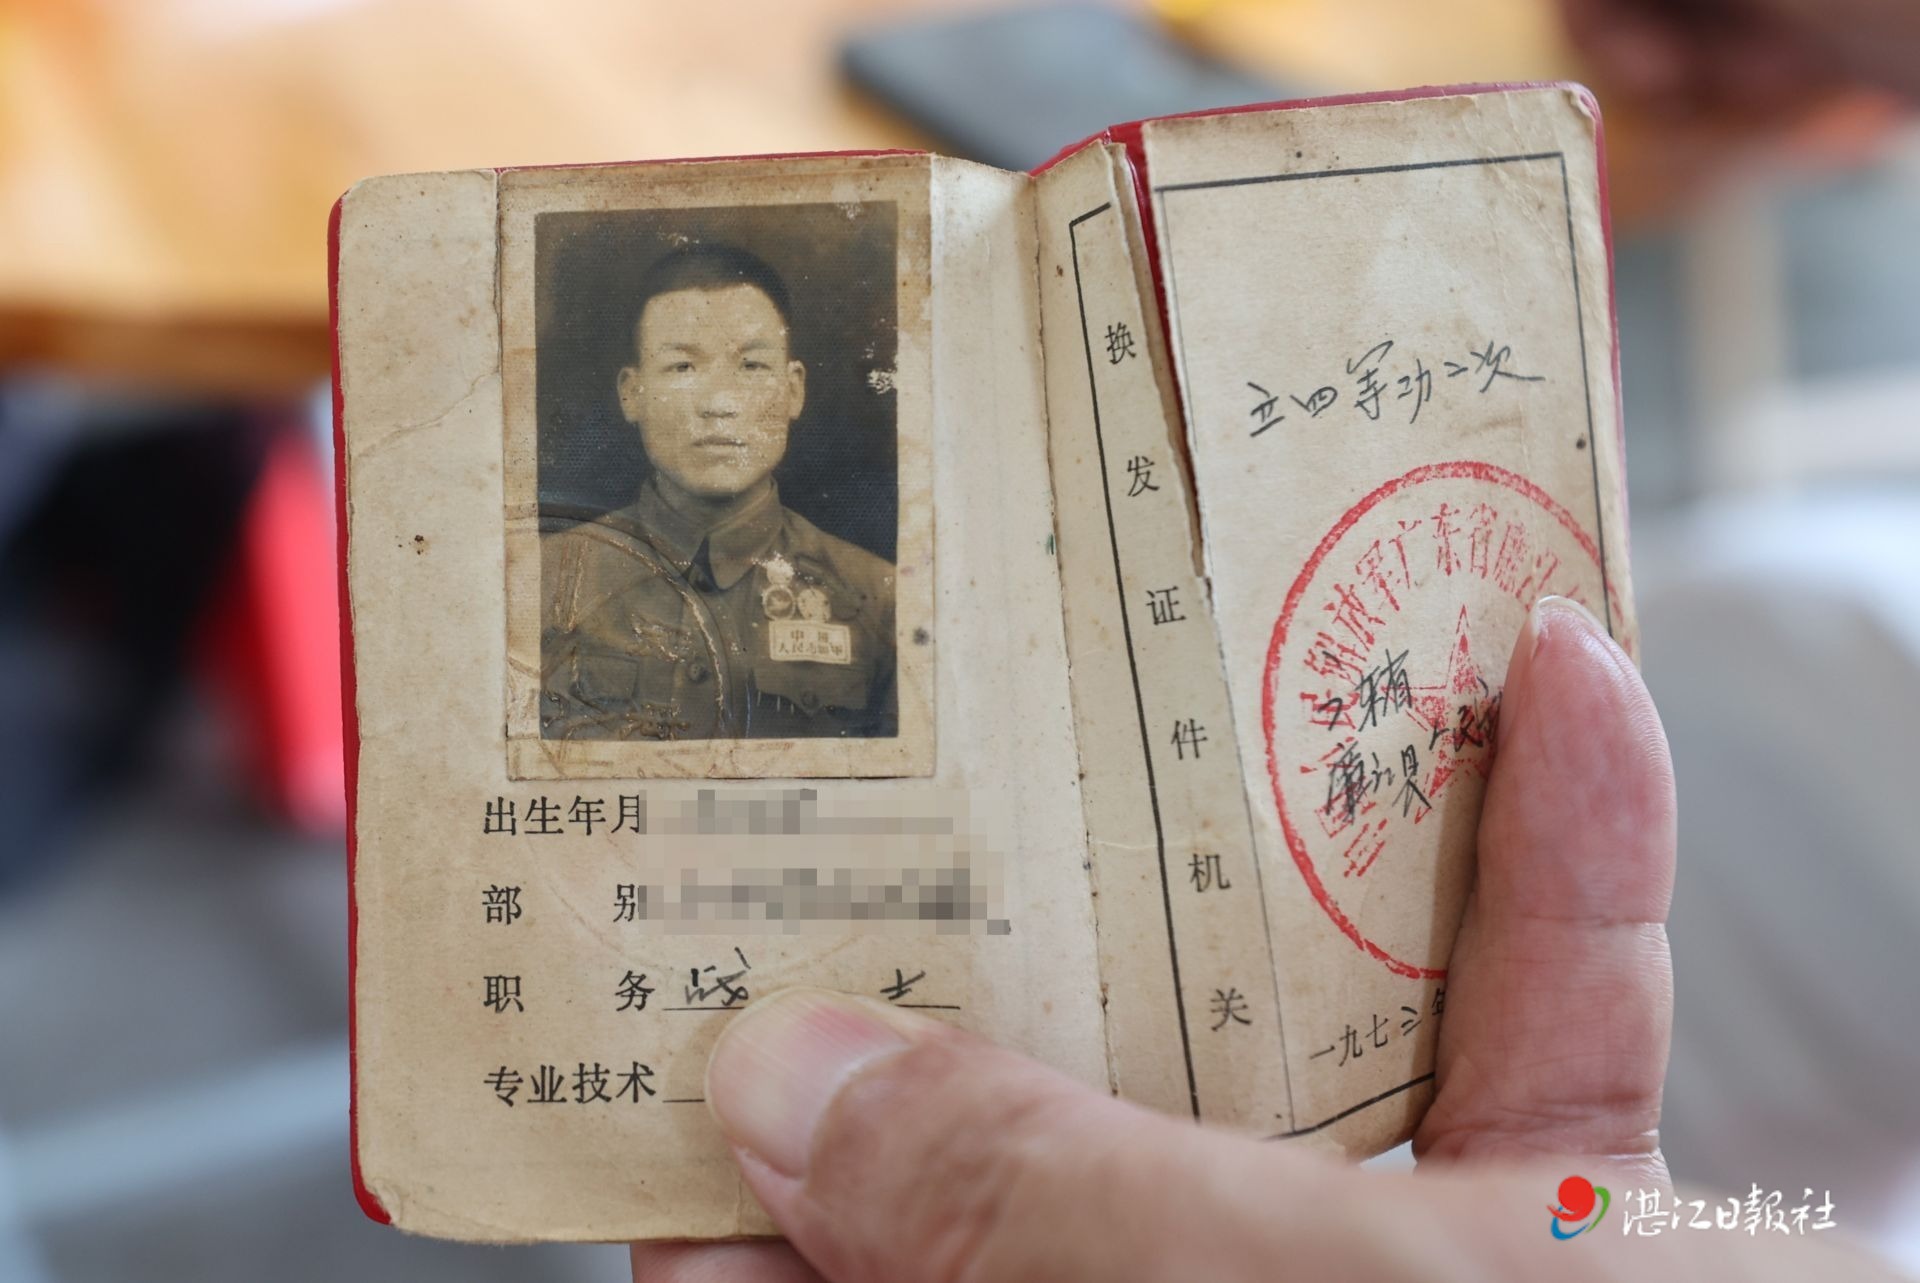 中国
人民志愿军
出生年月
部别
职务 战士
专业技术
换发证件机关
立四等功二次
广东省
廉江县人民
一九七三年
湛江日报社